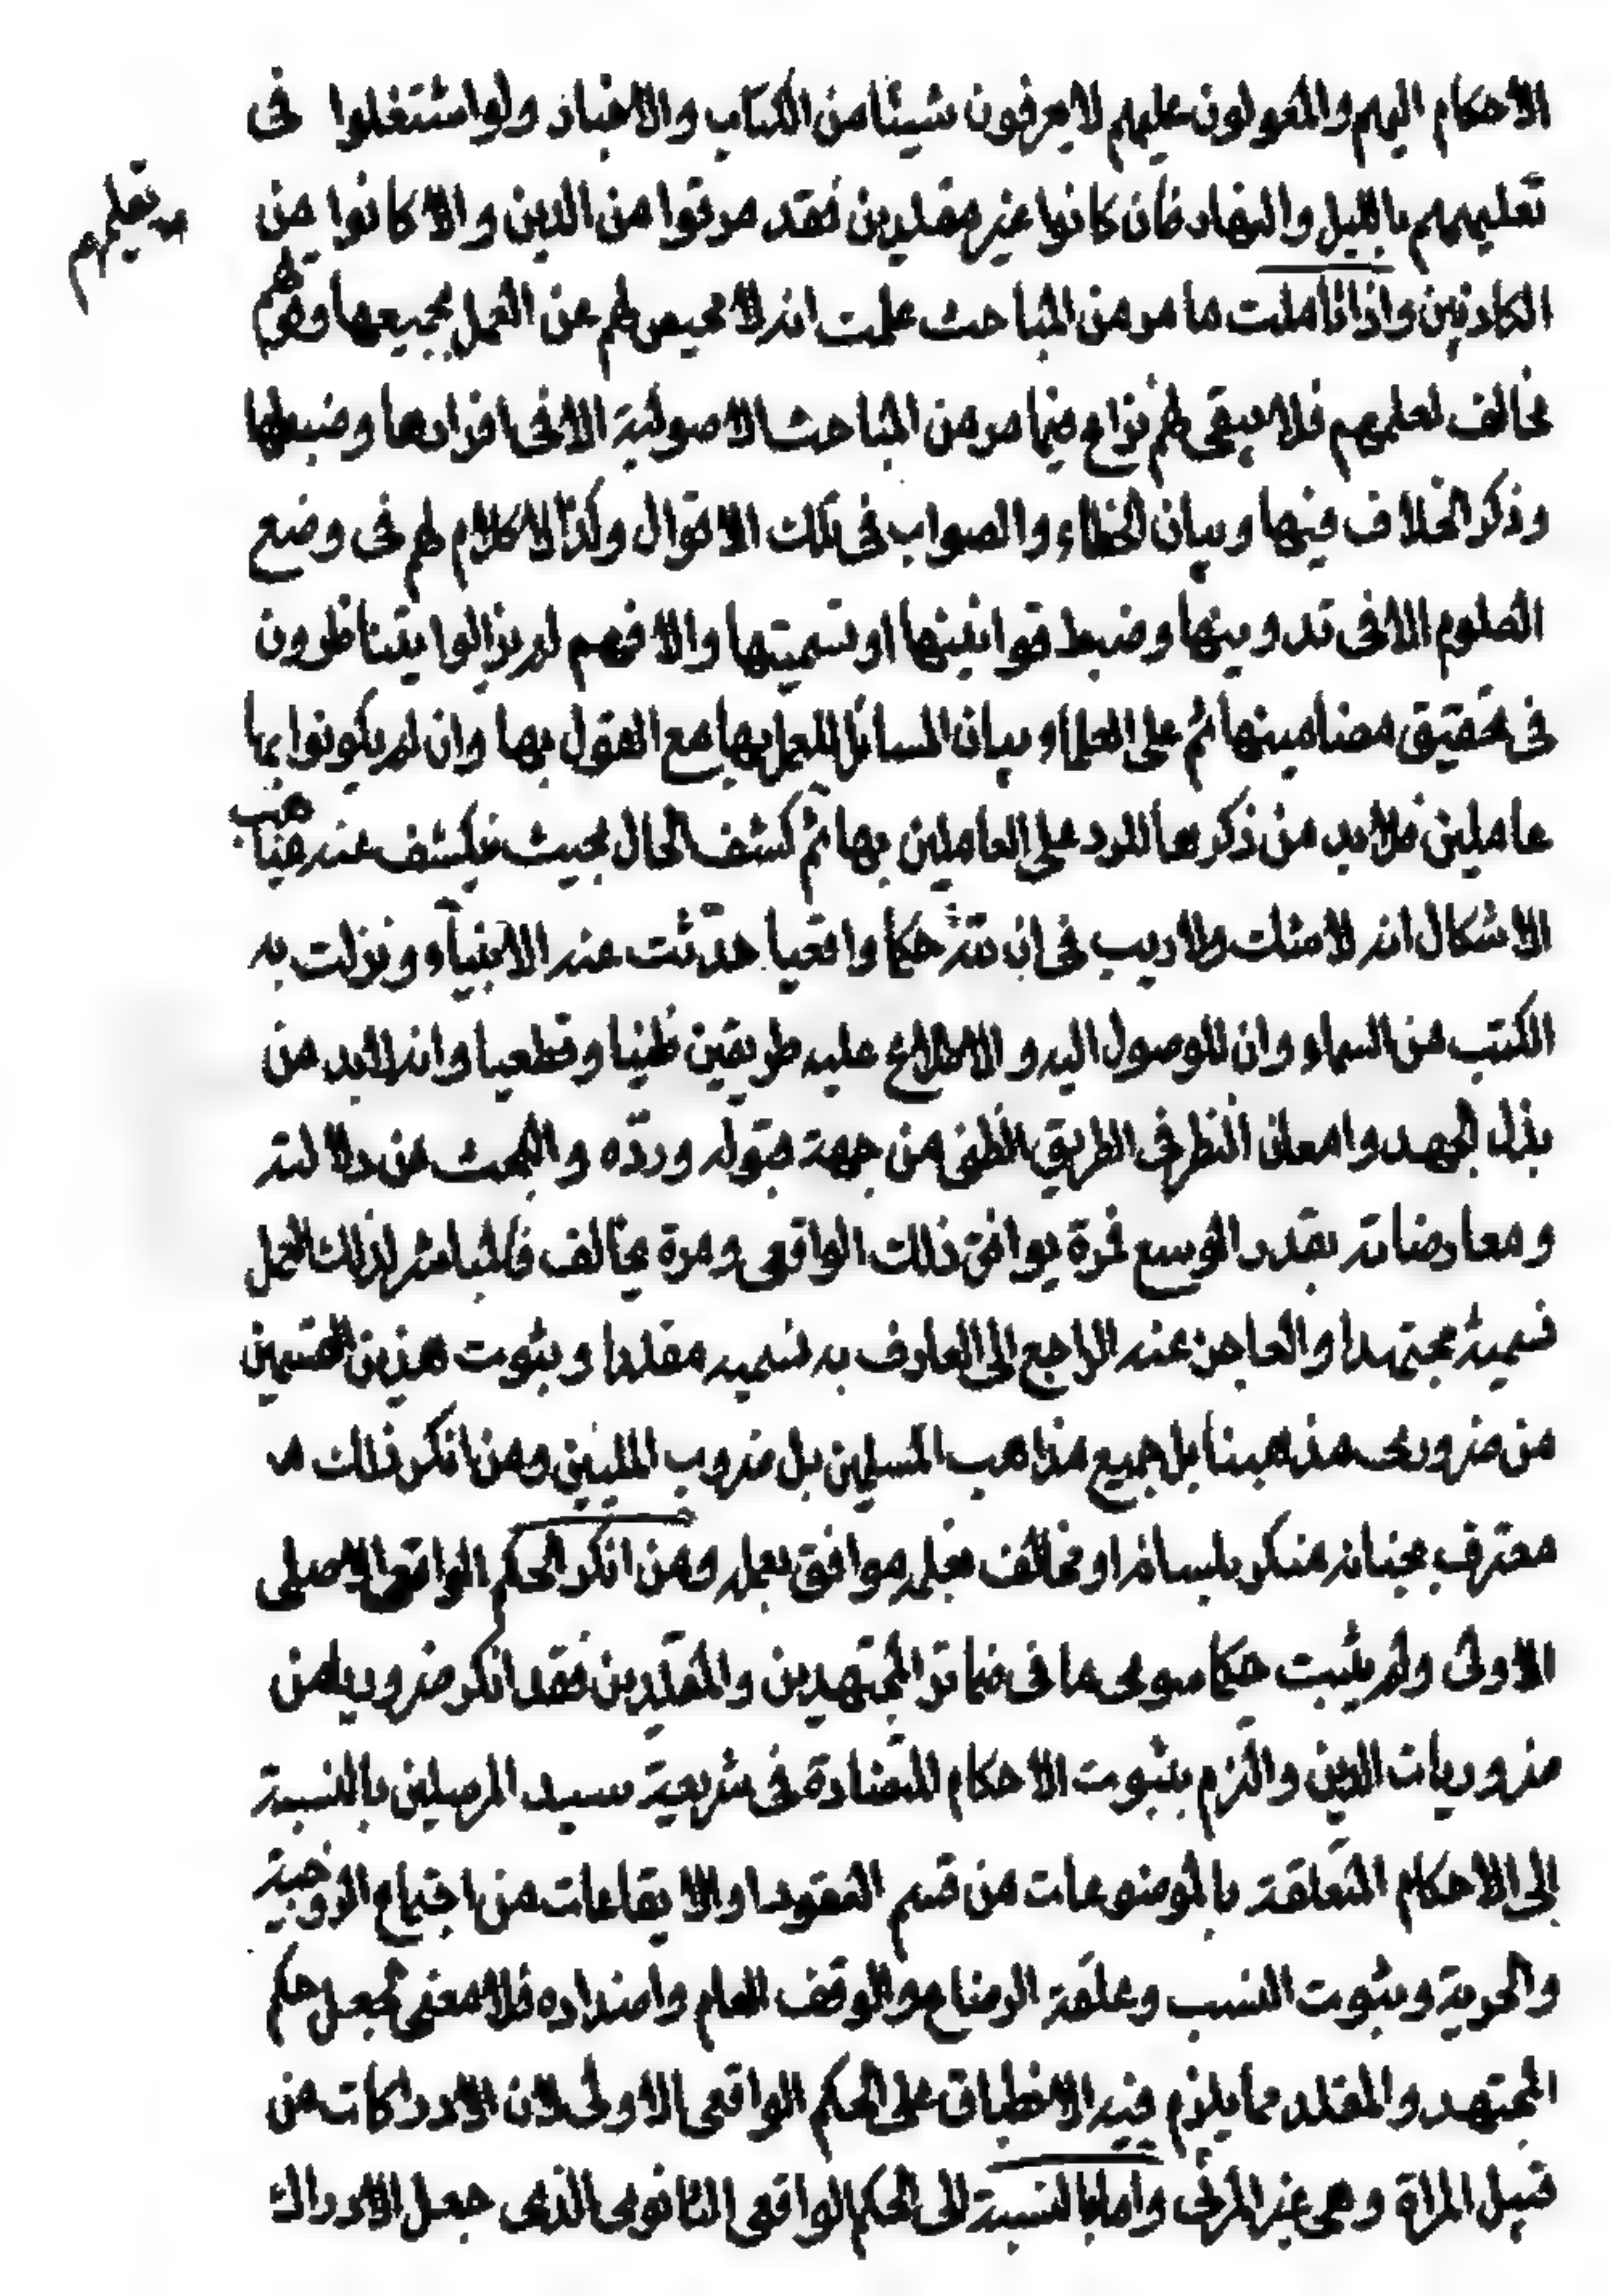 الاحكام اليهم والمعولون عليهم لا يعرفون شيئا من الكتاب والاخبار ولو اشتغلوا في
تعليمهم بالليل والنهار فان كانوا غير مقلدين فقد مرقوا من الدين والا كانوا من
تعليمهم
الكاذبين واذا تاملت ما مر من المباحث علمت انه لا محيص لهم عن العمل بجميعها وقولهم
مخالف لعلمهم فلا يبقى لهم نزاع فيما مر من المباحث الاصولية الا في افرادها وضبطها
وذكر الخلاف فيها وبيان الخطاء والصواب في تلك الاقوال وكذا لا كلام لهم في وضع
العلوم الا في تدوينها وضبط قوانينها او تسميتها والا فهم لم يزالوا يتناظرون
في تحقيق مضامينها ثم على العلماء بيان المسائل للعمل بها مع القول بها وان لم يكونوا بها
عاملين فلا بد من ذكرها للرد على العاملين بها ثم كشف الحال بحيث ينكشف عنه غياهب
الاشكال انه لا شك ولا ريب في ان لله حكما واقعيا حدثت عنه الانبياء ونزلت به
الكتب من السماء وان للوصول اليه والاطلاع عليه طريقين ظنيا وقطعيا وانه لا بد من
بذل الجهد وامعان النظر في الطريق الظني من جهة قبوله ورده والبحث عن دلالته
ومعارضاته بقدر الوسع فمرة يوافق ذلك الواقعي ومرة يخالف فالمباشر لذلك العمل
نسميه مجتهدا والعاجز عنه الراجع الى العارف به نسميه مقلدا وثبوت هذين القسمين
من ضروري مذهبنا بل جميع مذاهب المسلمين بل ضروب المليين ومن انكر ذلك
معترف بجنانه منكر بلسانه او مخالف بقوله موافق بعمله ومن انكر الحكم الواقعي الاصلي
الاولى ولم يثبت حكما سوى ما في ضمائر المجتهدين والمقلدين فقد انكر ضروريا من
ضروريات الدين والتزم بثبوت الاحكام المتضادة في شريعة سيد المرسلين بالنسبة
الى الاحكام المتعلقة بالموضوعات من قسم العقود او الايقاعات من اجتماع الزوجية
والحرية وثبوت النسب وعلقة الرضاع والوقف العام واضداده فلا معنى لجعل حكم
المجتهد والمقلد مما يلزم فيه الانطباق على الحكم الواقعي الاولى لان الادراكات من
قبيل المراة وهي غير المرئي واما بالنسبة الى الحكم الواقعي الثانوي الذي جعل الادراك